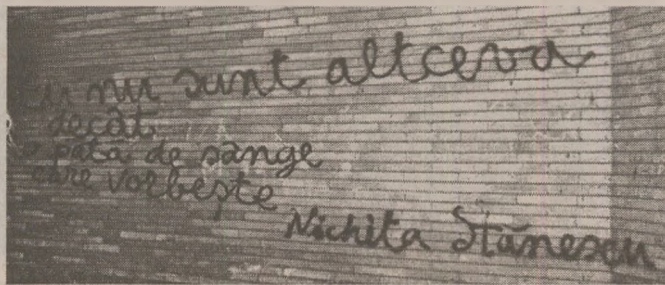 u nu sunt altceva
decât
o pata de sânge
care vorbește
Nichita Stănescu